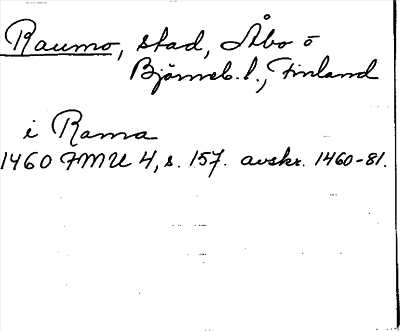 Raumo, stad, Åbo o
Björneb. l., Finland
i Rama
1460 FMU 4, s. 157. avskr. 1460-81.